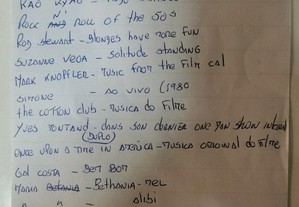 Rock AND N' Roll of the 50s
Rod Stewart - Blondes have more fun
Suzanne Vega - Solitude Standing
Mark Knopfler - Music from the Film Cal
Simone - Ao Vivo (1980
the Cotton Club - Musica do Filme
Yves Montand - Dans son dernier one man show
(Duplo)
Once upon a time in America - Musica original do Filme
Gal Costa - Bem Bom
Maria Betania - Bethania - Mel
" " - Alibi